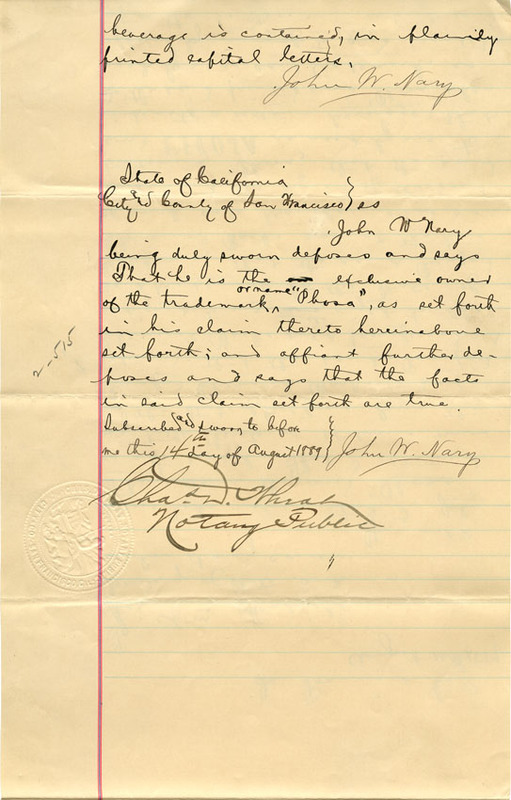 beverage is contained, in plainly
printed capital letters.
John W. Nary
State of California
City & County of San Francisco } ss
John W Nary
being duly sworn deposes and says
That he is the exclusive owner
of the trademark, or name "Phosa", as set forth
in his claim thereto hereinabove
set forth; and affiant further de-
poses and says that the facts
in said claim set forth are true.
Subscribed and sworn to before
me this 14th day of August 1889 } John W. Nary
Notary Public
2-515